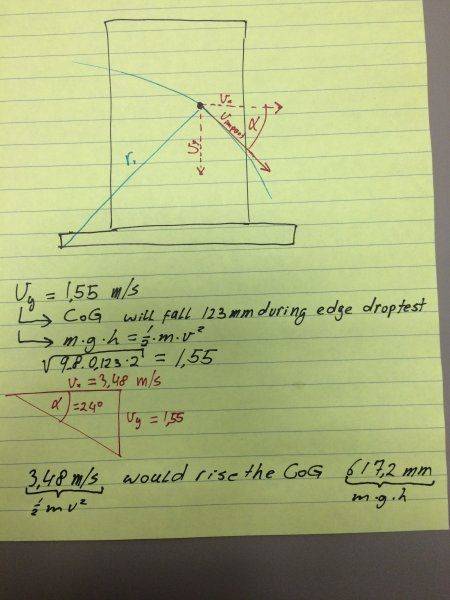 Uₓ
α
Uimpact
Uy
r₁
Uy = 1,55 m/s
↳ CoG will fall 123 mm during edge droptest
↳ m·g·h = ½·m·v²
√9.8·0,123·2 = 1,55
Uₓ = 3,48 m/s
α = 24°
Uy = 1,55
3,48 m/s would rise the CoG 617,2 mm
½mv² m·g·h